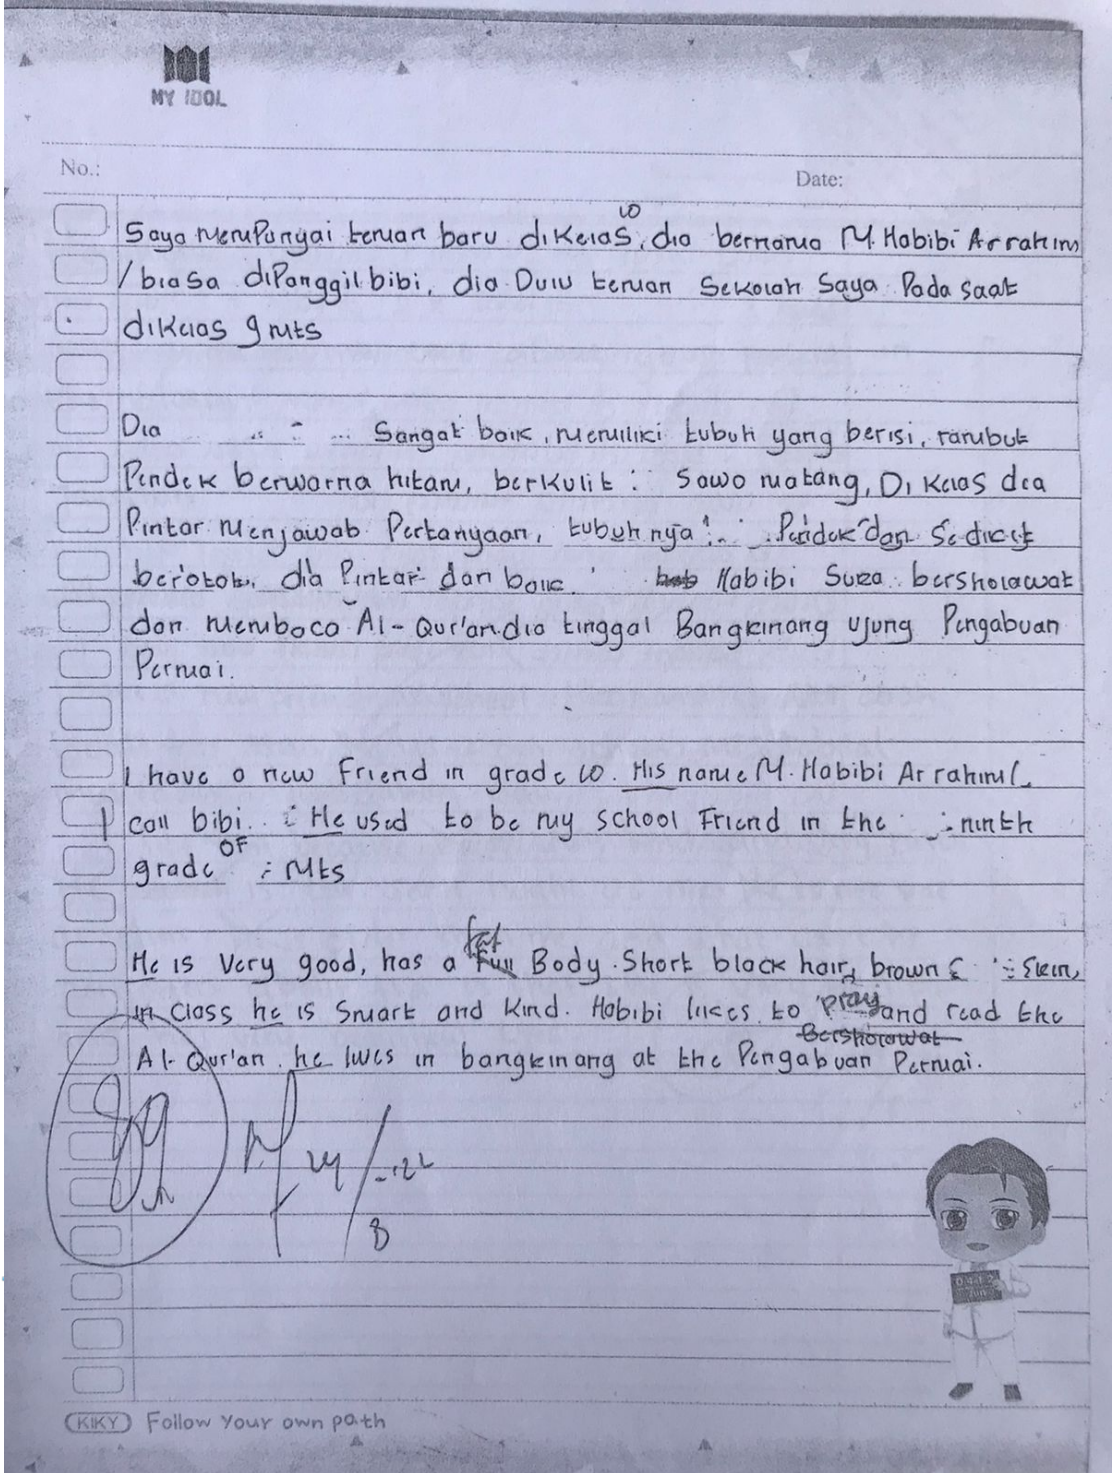 MY IDOL
No.:
Date:
10
Saya mempunyai teman baru dikelas, dia bernama M. Habibi Arrahim
/biasa dipanggil bibi, dia Dulu teman Sekolah Saya Pada saat
dikelas 9 mts
Dia Sangat baik, memiliki tubuh yang berisi, rambut
Pendek berwarna hitam, berkulit : Sawo matang, Di Kelas dia
Pintar Menjawab Pertanyaan, tubuhnya Pendek dan Sedikit
berotot, dia Pintar dan baik. Habibi Suka bersholawat
dan membaca Al-Qur'an.dia tinggal Bangkinang ujung Pengabuan
Permai.
I have a new Friend in grade 10. His name M. Habibi Arrahim(
I call bibi. He used to be my school Friend in the ninth
grade OF Mts
He is Very good, has a fat Full Body. Short black hair, brown Skin,
in Class he is Smart and Kind. Habibi likes to Pray and read the
Bersholawat
Al-Qur'an. he lives in bangkinang at the Pengabuan Permai.
8
KIKY Follow Your own path